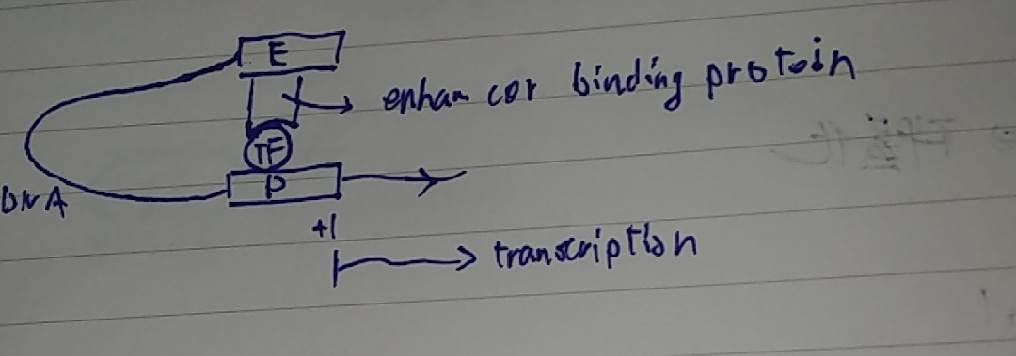 E
enhan cor binding protein
TF
P
DNA
+1
transcription